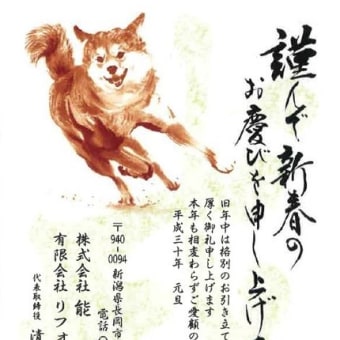 謹んで新春の
お慶びを申し上げ
旧年中は格別のお引き立て
厚く御礼申し上げます
本年も相変わらずご愛顧の
平成三十年 元旦
〒940-0094 新潟県長岡市
電話
株式会社 能
有限会社 リフォ
代表取締役 清